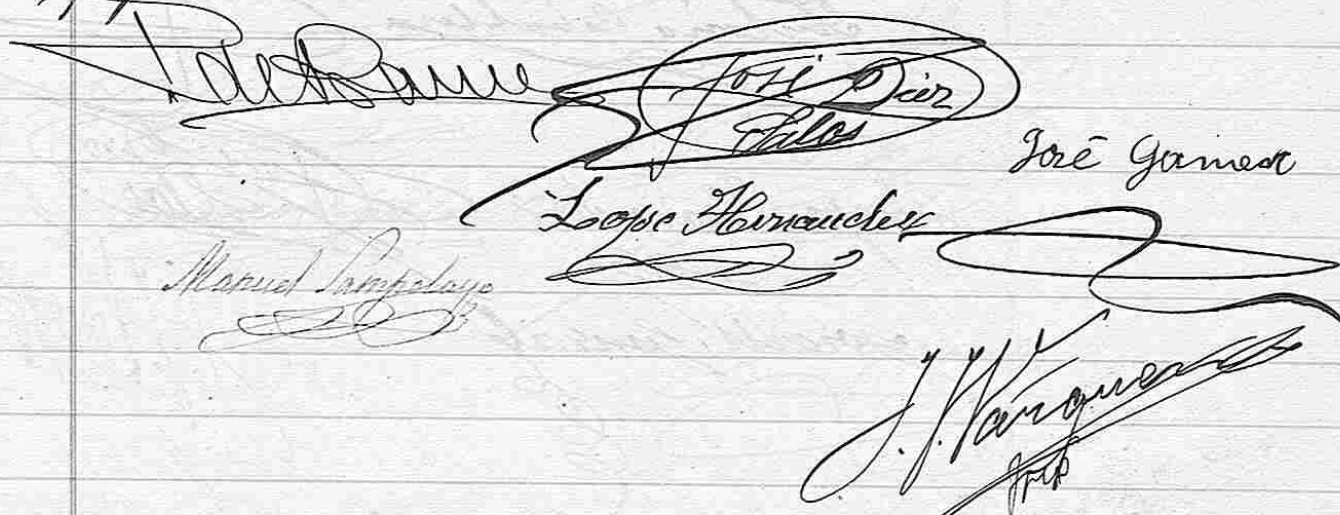 José Díez
Palos
José Gamez
Lope Hernandez
Manuel Sampelayo
J. J. Vazquez